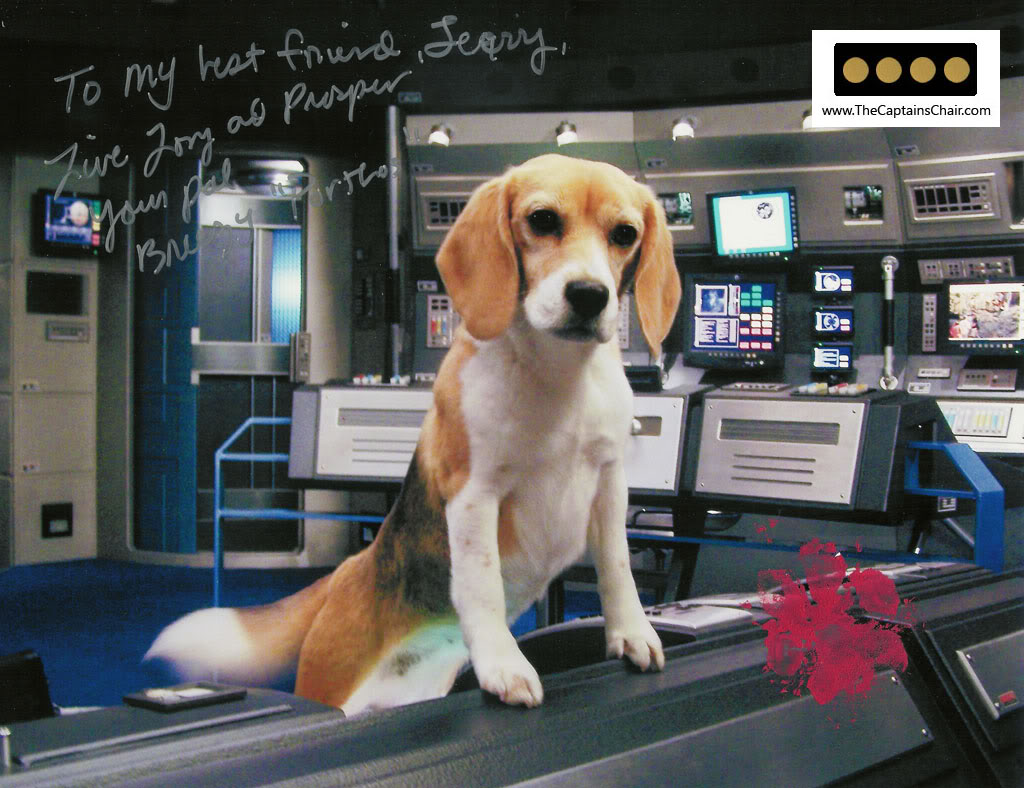 To My best friend, Jerry,
Live Long ad Prosper
Your pal
www.TheCaptainsChair.com